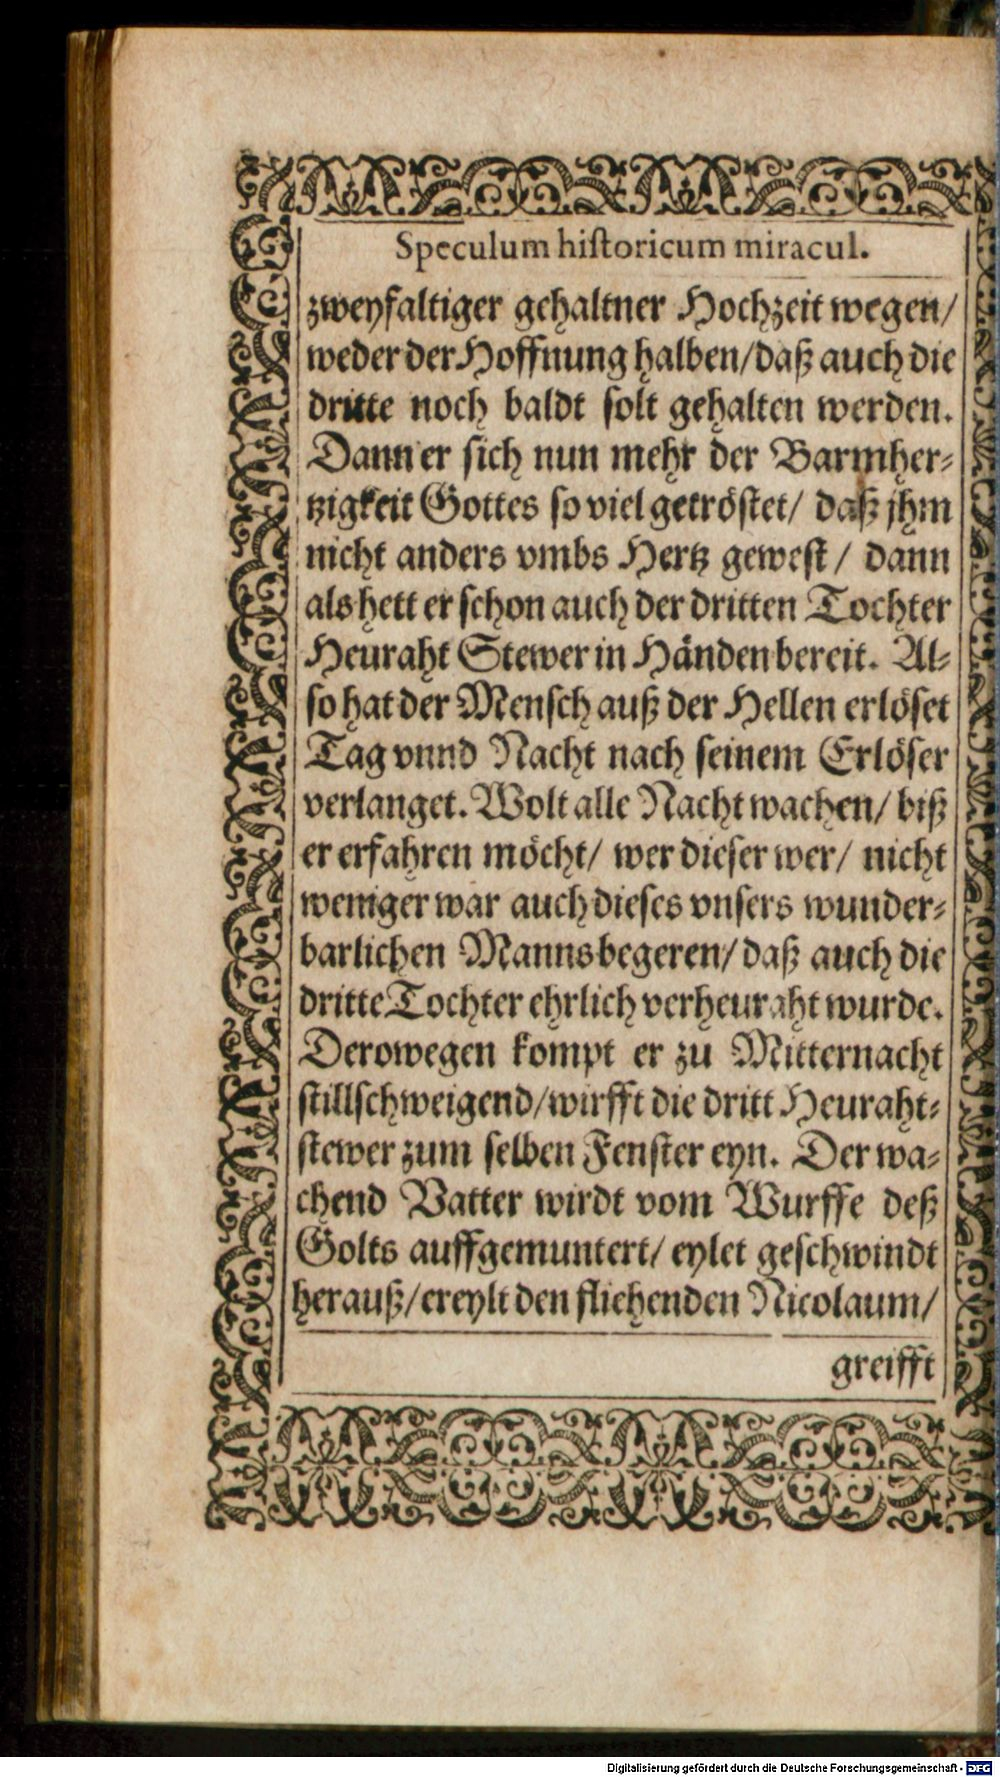 Speculum historicum miracul.
zweyfaltiger gehaltner Hochzeit wegen/
weder der Hoffnung halben/ daß auch die
dritte noch baldt solt gehalten werden.
Dann er sich nun mehr der Barmher-
tzigkeit Gottes so viel getröstet/ daß jhm
nicht anders vmbs Hertz gewest/ dann
als hett er schon auch der dritten Tochter
Heuraht Stewer in Händen bereit. Al-
so hat der Mensch auß der Hellen erlöset
Tag vnnd Nacht nach seinem Erlöser
verlanget. Wolt alle Nacht wachen/ biß
er erfahren möcht/ wer dieser wer/ nicht
weniger war auch dieses vnsers wunder-
barlichen Manns begeren/ daß auch die
dritte Tochter ehrlich verheuraht wurde.
Derowegen kompt er zu Mitternacht
stillschweigend/ wirfft die dritt Heuraht-
stewer zum selben Fenster eyn. Der wa-
chend Vatter wirdt vom Wurffe deß
Golts auffgemuntert/ eylet geschwindt
herauß/ ereylt den fliehenden Nicolaum/
greifft
Digitalisierung gefördert durch die Deutsche Forschungsgemeinschaft - DFG